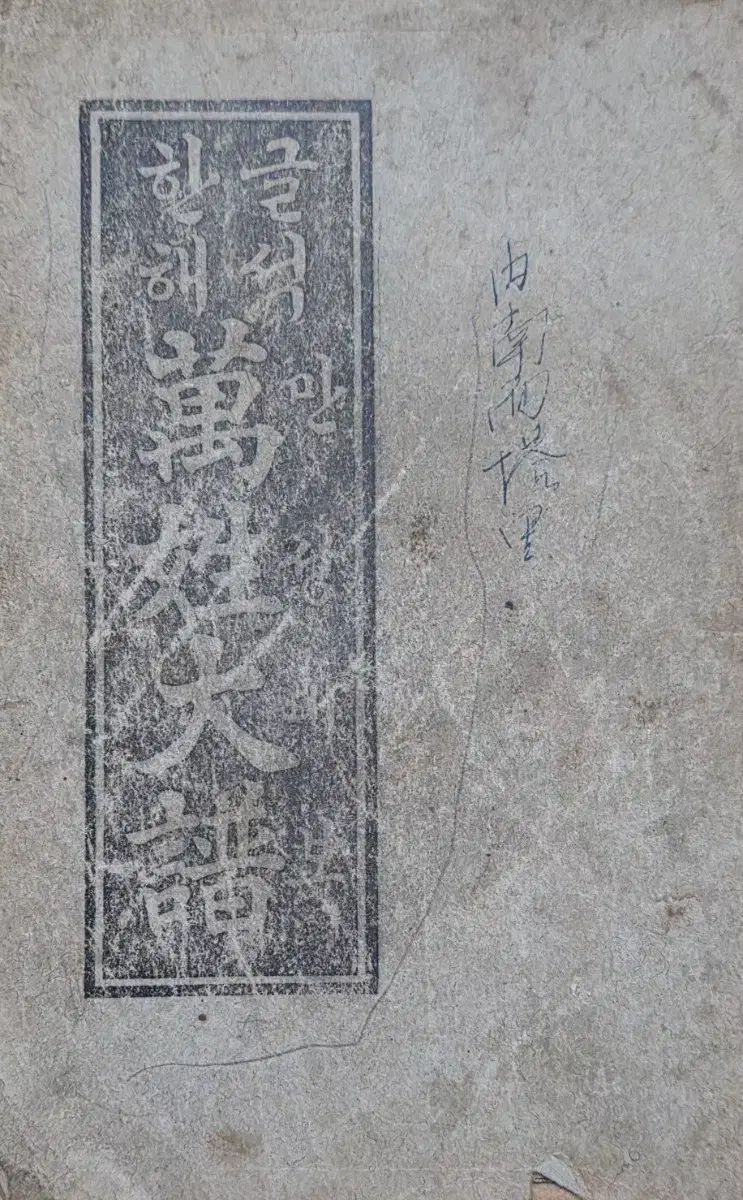 한글
해석
萬姓大譜
만성대보
內南面塔里